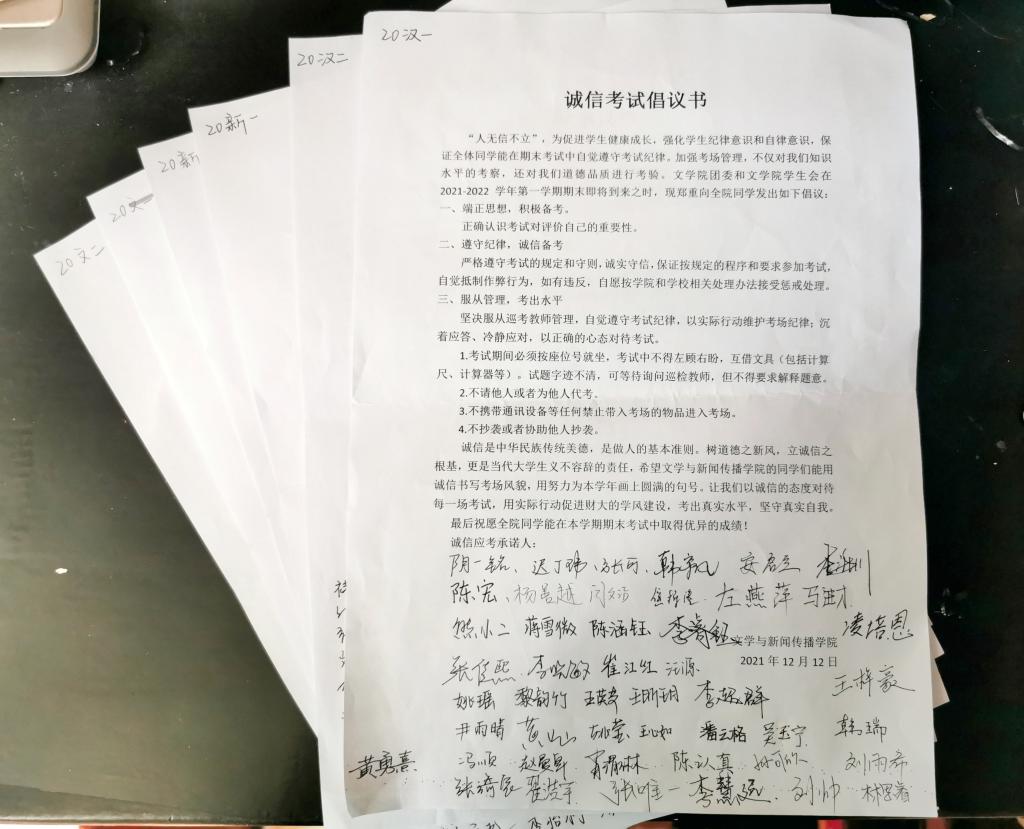 20汉一
20汉二
20新一
20新
20文二
诚信考试倡议书
“人无信不立”，为促进学生健康成长，强化学生纪律意识和自律意识，保
证全体同学能在期末考试中自觉遵守考试纪律。加强考场管理，不仅对我们知识
水平的考察，还对我们道德品质进行考验。文学院团委和文学院学生会在
2021-2022 学年第一学期期末即将到来之时，现郑重向全院同学发出如下倡议：
一、端正思想，积极备考。
正确认识考试对评价自己的重要性。
二、遵守纪律，诚信备考
严格遵守考试的规定和守则，诚实守信，保证按规定的程序和要求参加考试，
自觉抵制作弊行为，如有违反，自愿按学院和学校相关处理办法接受惩戒处理。
三、服从管理，考出水平
坚决服从巡考教师管理，自觉遵守考试纪律，以实际行动维护考场纪律；沉
着应答、冷静应对，以正确的心态对待考试。
1.考试期间必须按座位号就坐，考试中不得左顾右盼，互借文具（包括计算
尺、计算器等）。试题字迹不清，可等待询问巡检教师，但不得要求解释题意。
2.不请他人或者为他人代考。
3.不携带通讯设备等任何禁止带入考场的物品进入考场。
4.不抄袭或者协助他人抄袭。
诚信是中华民族传统美德，是做人的基本准则。树道德之新风，立诚信之
根基，更是当代大学生义不容辞的责任，希望文学与新闻传播学院的同学们能用
诚信书写考场风貌，用努力为本学年画上圆满的句号。让我们以诚信的态度对待
每一场考试，用实际行动促进财大的学风建设，考出真实水平，坚守真实自我。
最后祝愿全院同学能在本学期期末考试中取得优异的成绩！
诚信应考承诺人：
阴一铭、迟丁瑞、张可、韩 安启立
陈宏、杨昌越 左燕萍
熊小二 蒋雪微 陈涵钰 李睿钰 凌培恩
文学与新闻传播学院
2021 年 12 月 12 日
张佳熙 李晓敏 崔江红 汪源 王梓豪
姚瑶 黎韵竹 王明玥
尹雨晴 黄山 胡莹 潘云格 吴玉宁 韩瑞
黄勇熹 冯顺 陈认真 刘雨希
张琦 张唯一 李慧远 刘帅